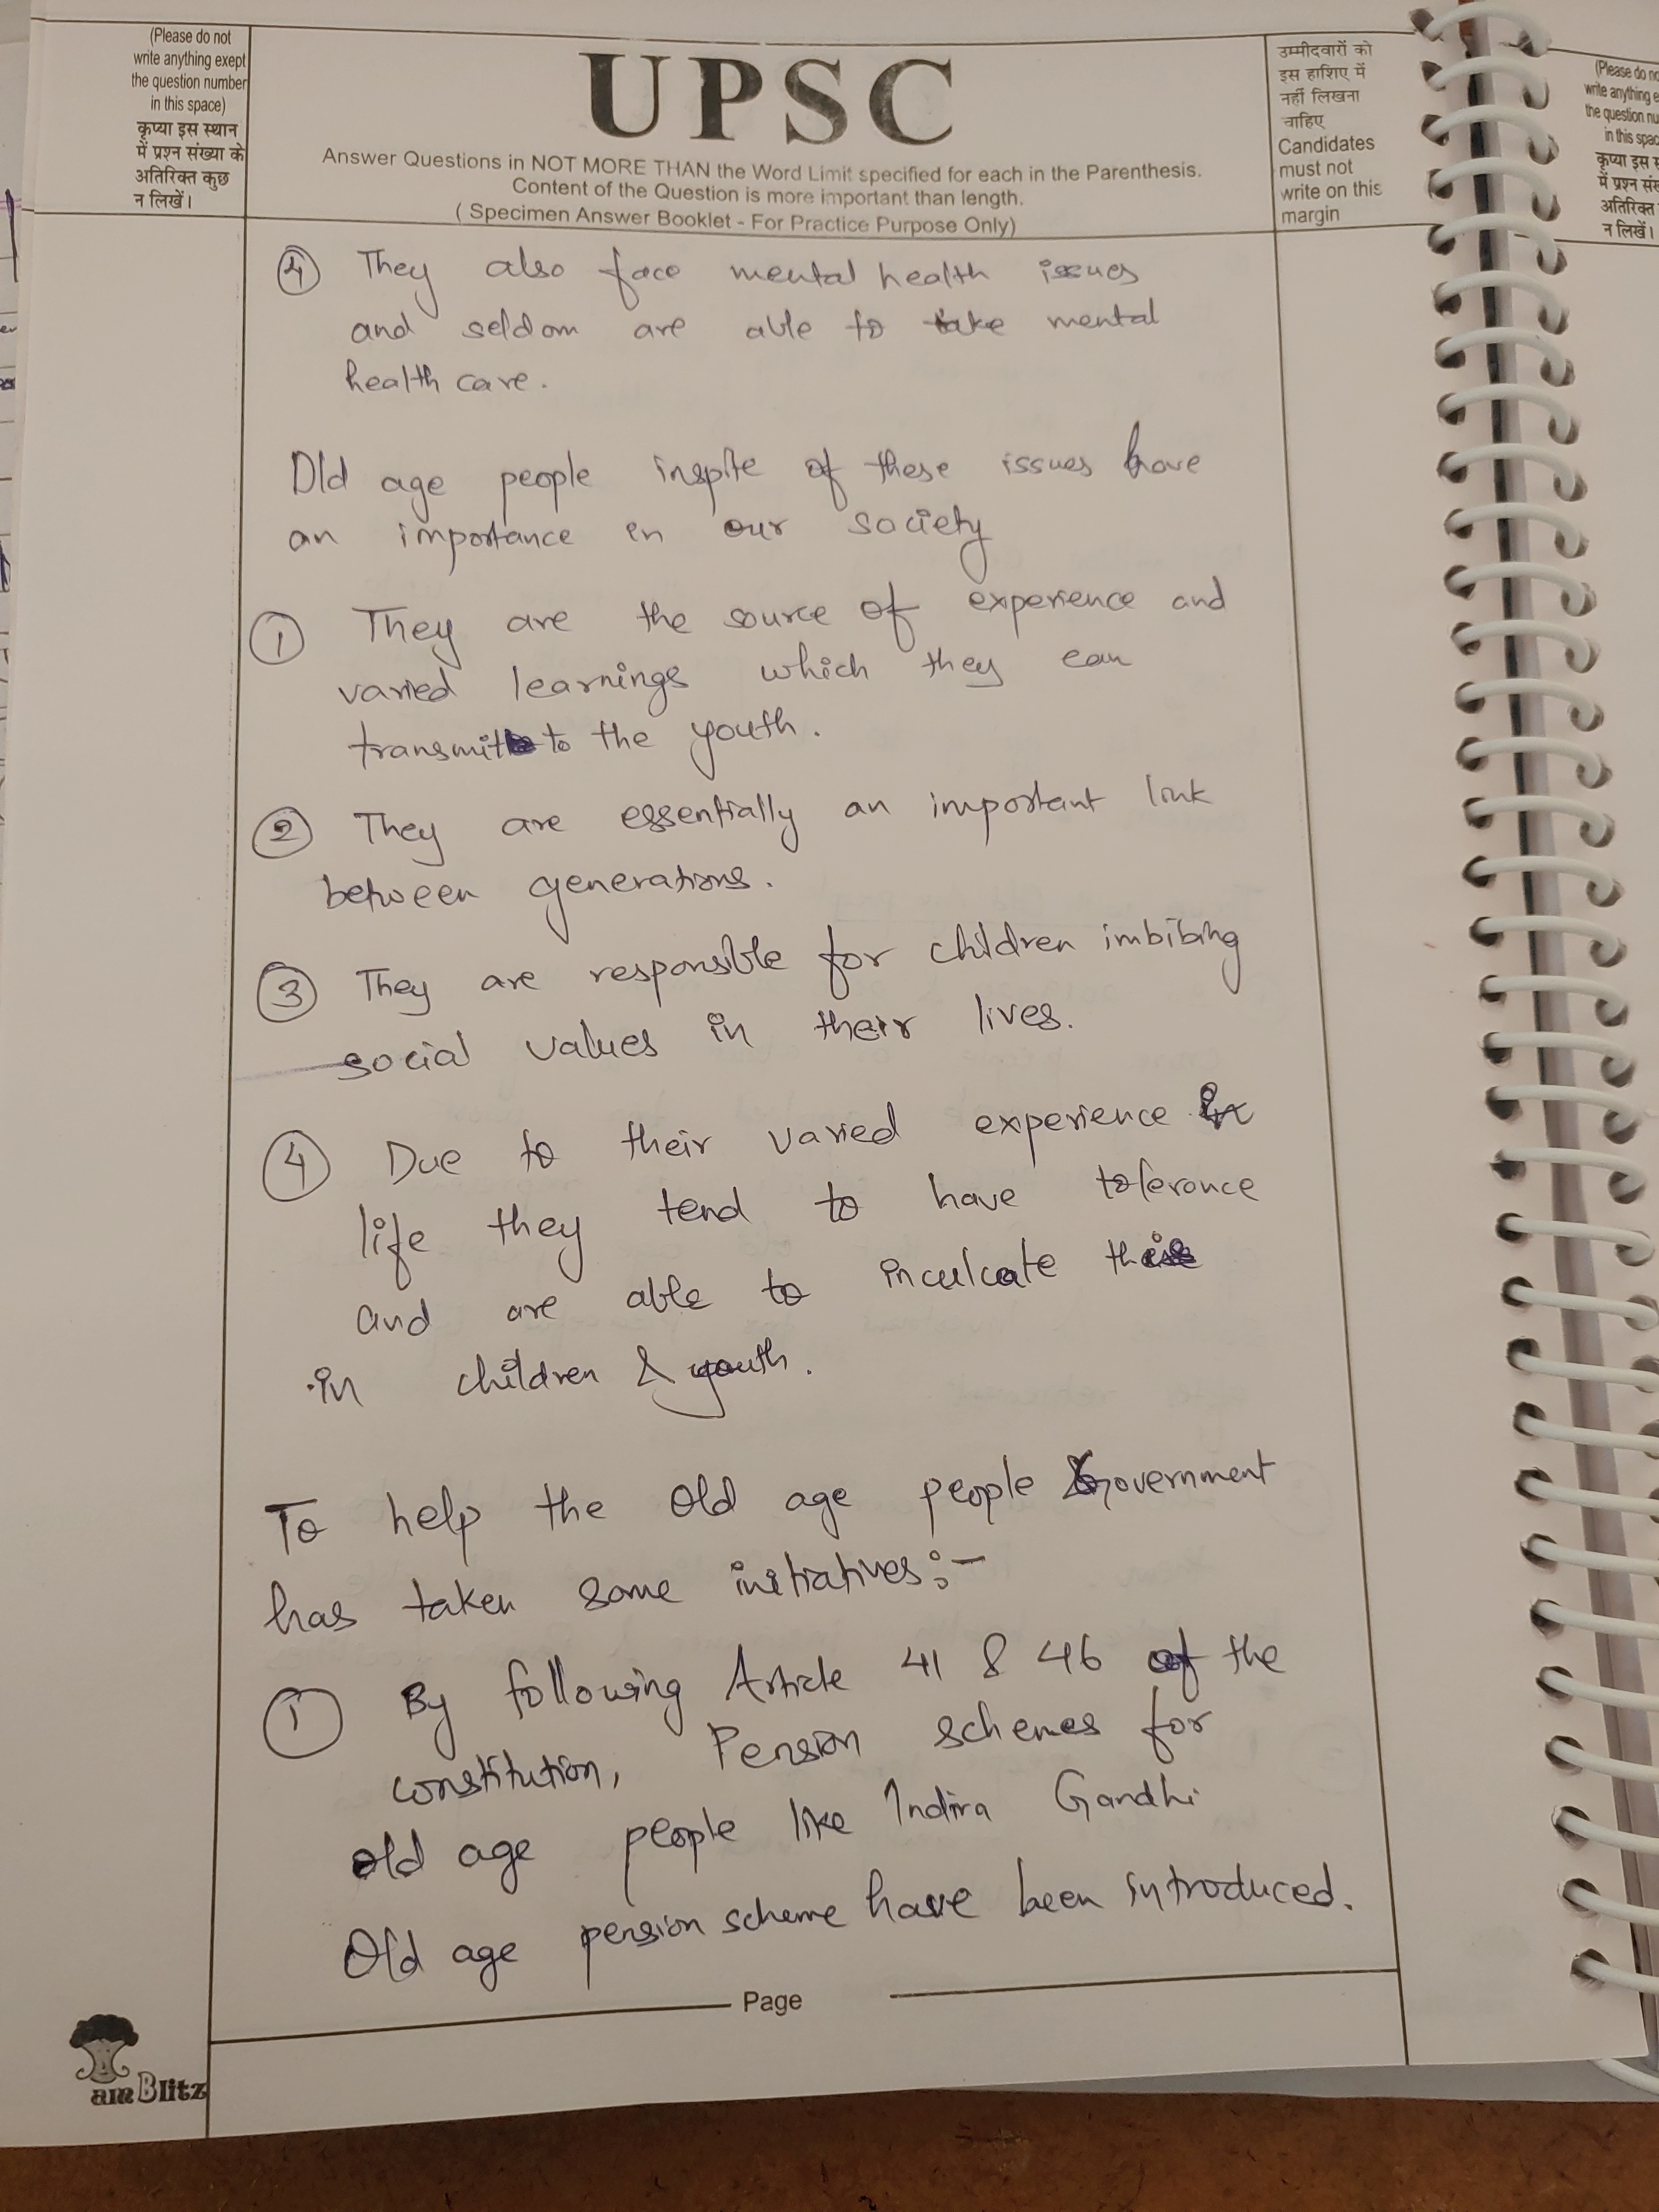 (Please do not
write anything exept
the question number
in this space)
कृप्या इस स्थान
में प्रश्न संख्या के
अतिरिक्त कुछ
न लिखें।
UPSC
Answer Questions in NOT MORE THAN the Word Limit specified for each in the Parenthesis.
Content of the Question is more important than length.
( Specimen Answer Booklet - For Practice Purpose Only)
उम्मीदवारों को
इस हाशिए में
नहीं लिखना
चाहिए
Candidates
must not
write on this
margin
4 They also face mental health issues
and seldom are able to take mental
health care.
Old age people inspite of these issues have
an importance in our society
1 They are the source of experience and
varied learnings which they can
transmit to the youth.
2 They are essentially an important link
between generations.
3 They are responsible for children imbibing
social values in their lives.
4 Due to their varied experience in
life they tend to have tolerance
and are able to inculcate this
in children & youth.
To help the old age people Government
has taken some initiatives:-
1 By following Article 41 & 46 of the
constitution, Pension schemes for
old age people like Indira Gandhi
Old age pension scheme have been introduced.
Page
amBlitz
(Please do
write anything
the question
in this
कृप्या इस
में प्रश्न
अतिरिक्त
न लिखें।